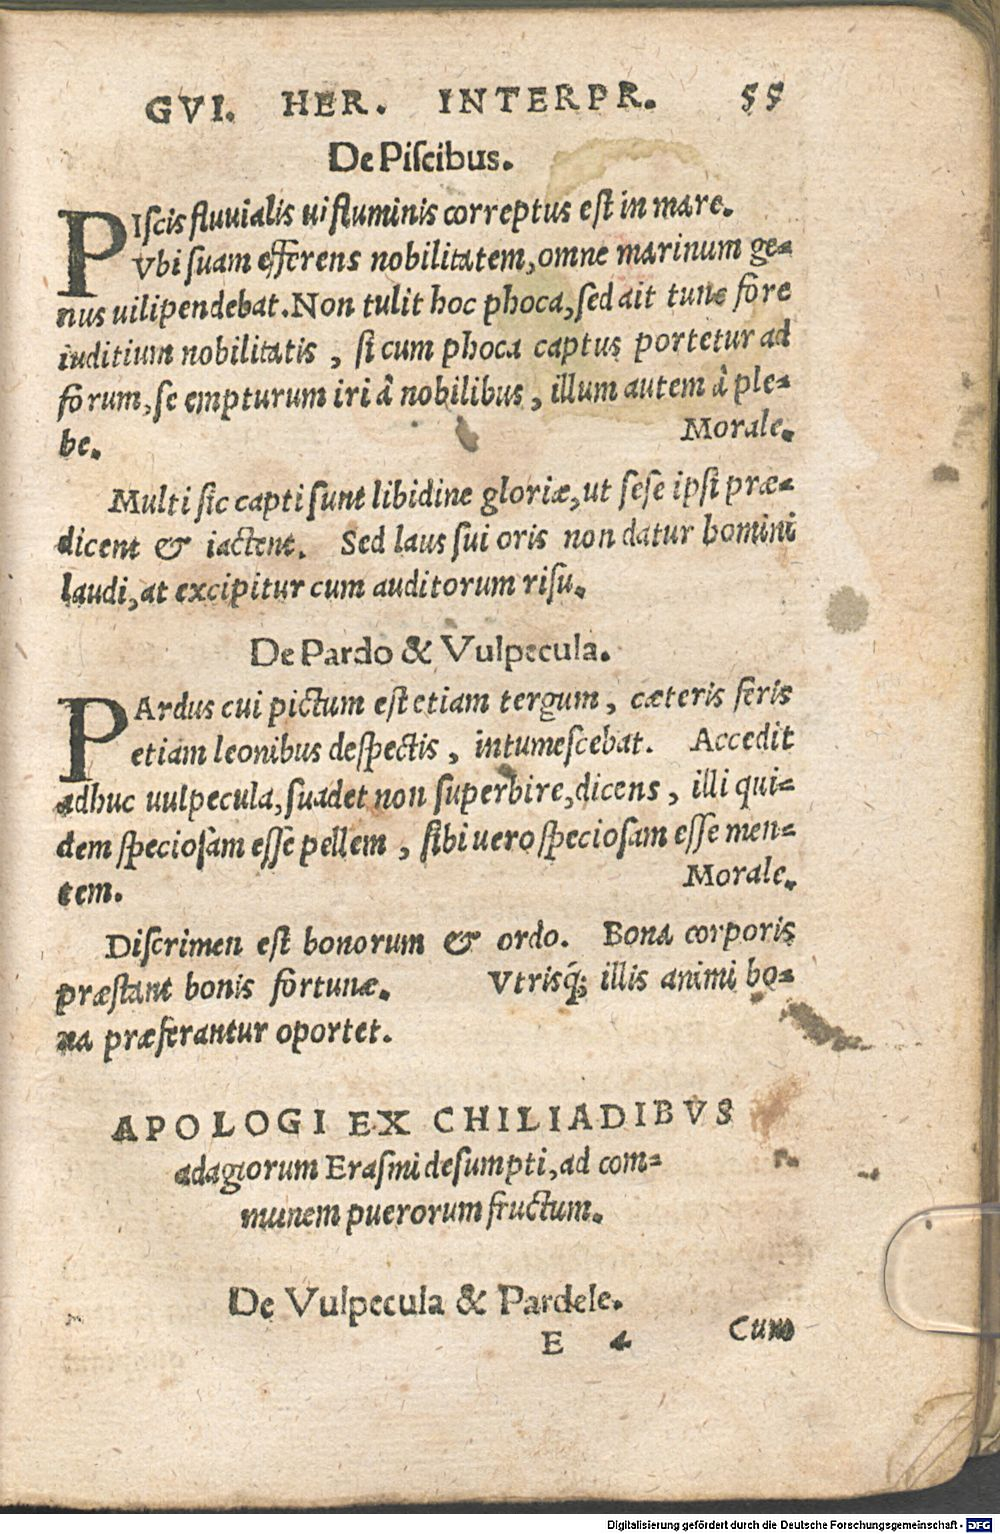 GVI. HER. INTERPR. 55
De Piſcibus.
PIſcis fluuialis ui fluminis correptus eſt in mare.
Vbi ſuam efferens nobilitatem, omne marinum ge-
nus uilipendebat. Non tulit hoc phoca, ſed ait tunc fore
iuditium nobilitatis, ſi cum phoca captus portetur ad
forum, ſe empturum iri à nobilibus, illum autem à ple-
be.
Morale.
Multi ſic capti ſunt libidine gloriæ, ut ſeſe ipſi præ-
dicent & iactent. Sed laus ſui oris non datur homini
laudi, at excipitur cum auditorum riſu.
De Pardo & Vulpecula.
PArdus cui pictum eſt etiam tergum, cæteris feris
etiam leonibus deſpectis, intumeſcebat. Accedit
adhuc uulpecula, ſuadet non ſuperbire, dicens, illi qui-
dem ſpecioſam eſſe pellem, ſibi uero ſpecioſam eſſe men-
tem.
Morale.
Diſcrimen eſt bonorum & ordo. Bona corporis
præſtant bonis fortunæ. Vtriſq́; illis animi bo-
na præferantur oportet.
APOLOGI EX CHILIADIBVS
adagiorum Eraſmi deſumpti, ad com-
munem puerorum fructum.
De Vulpecula & Pardele.
E 4 Cum
Digitalisierung gefördert durch die Deutsche Forschungsgemeinschaft - DFG